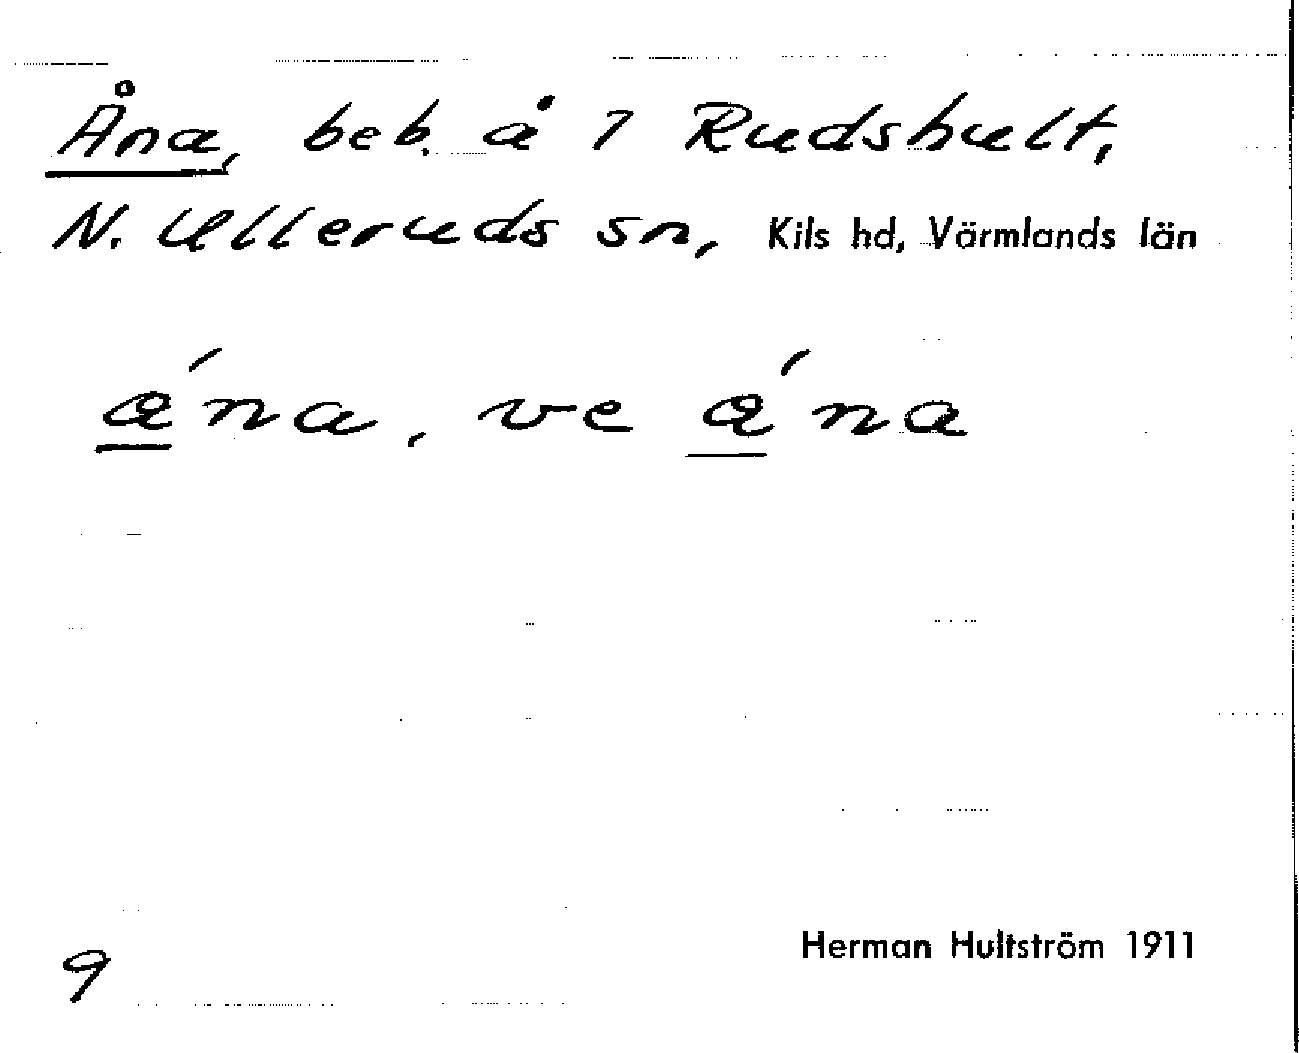 Åna, beb. å 1 Rudshult,
N. Ulleruds sn, Kils hd, Värmlands län
a̱´na, ve a̱´na
9
Herman Hultström 1911